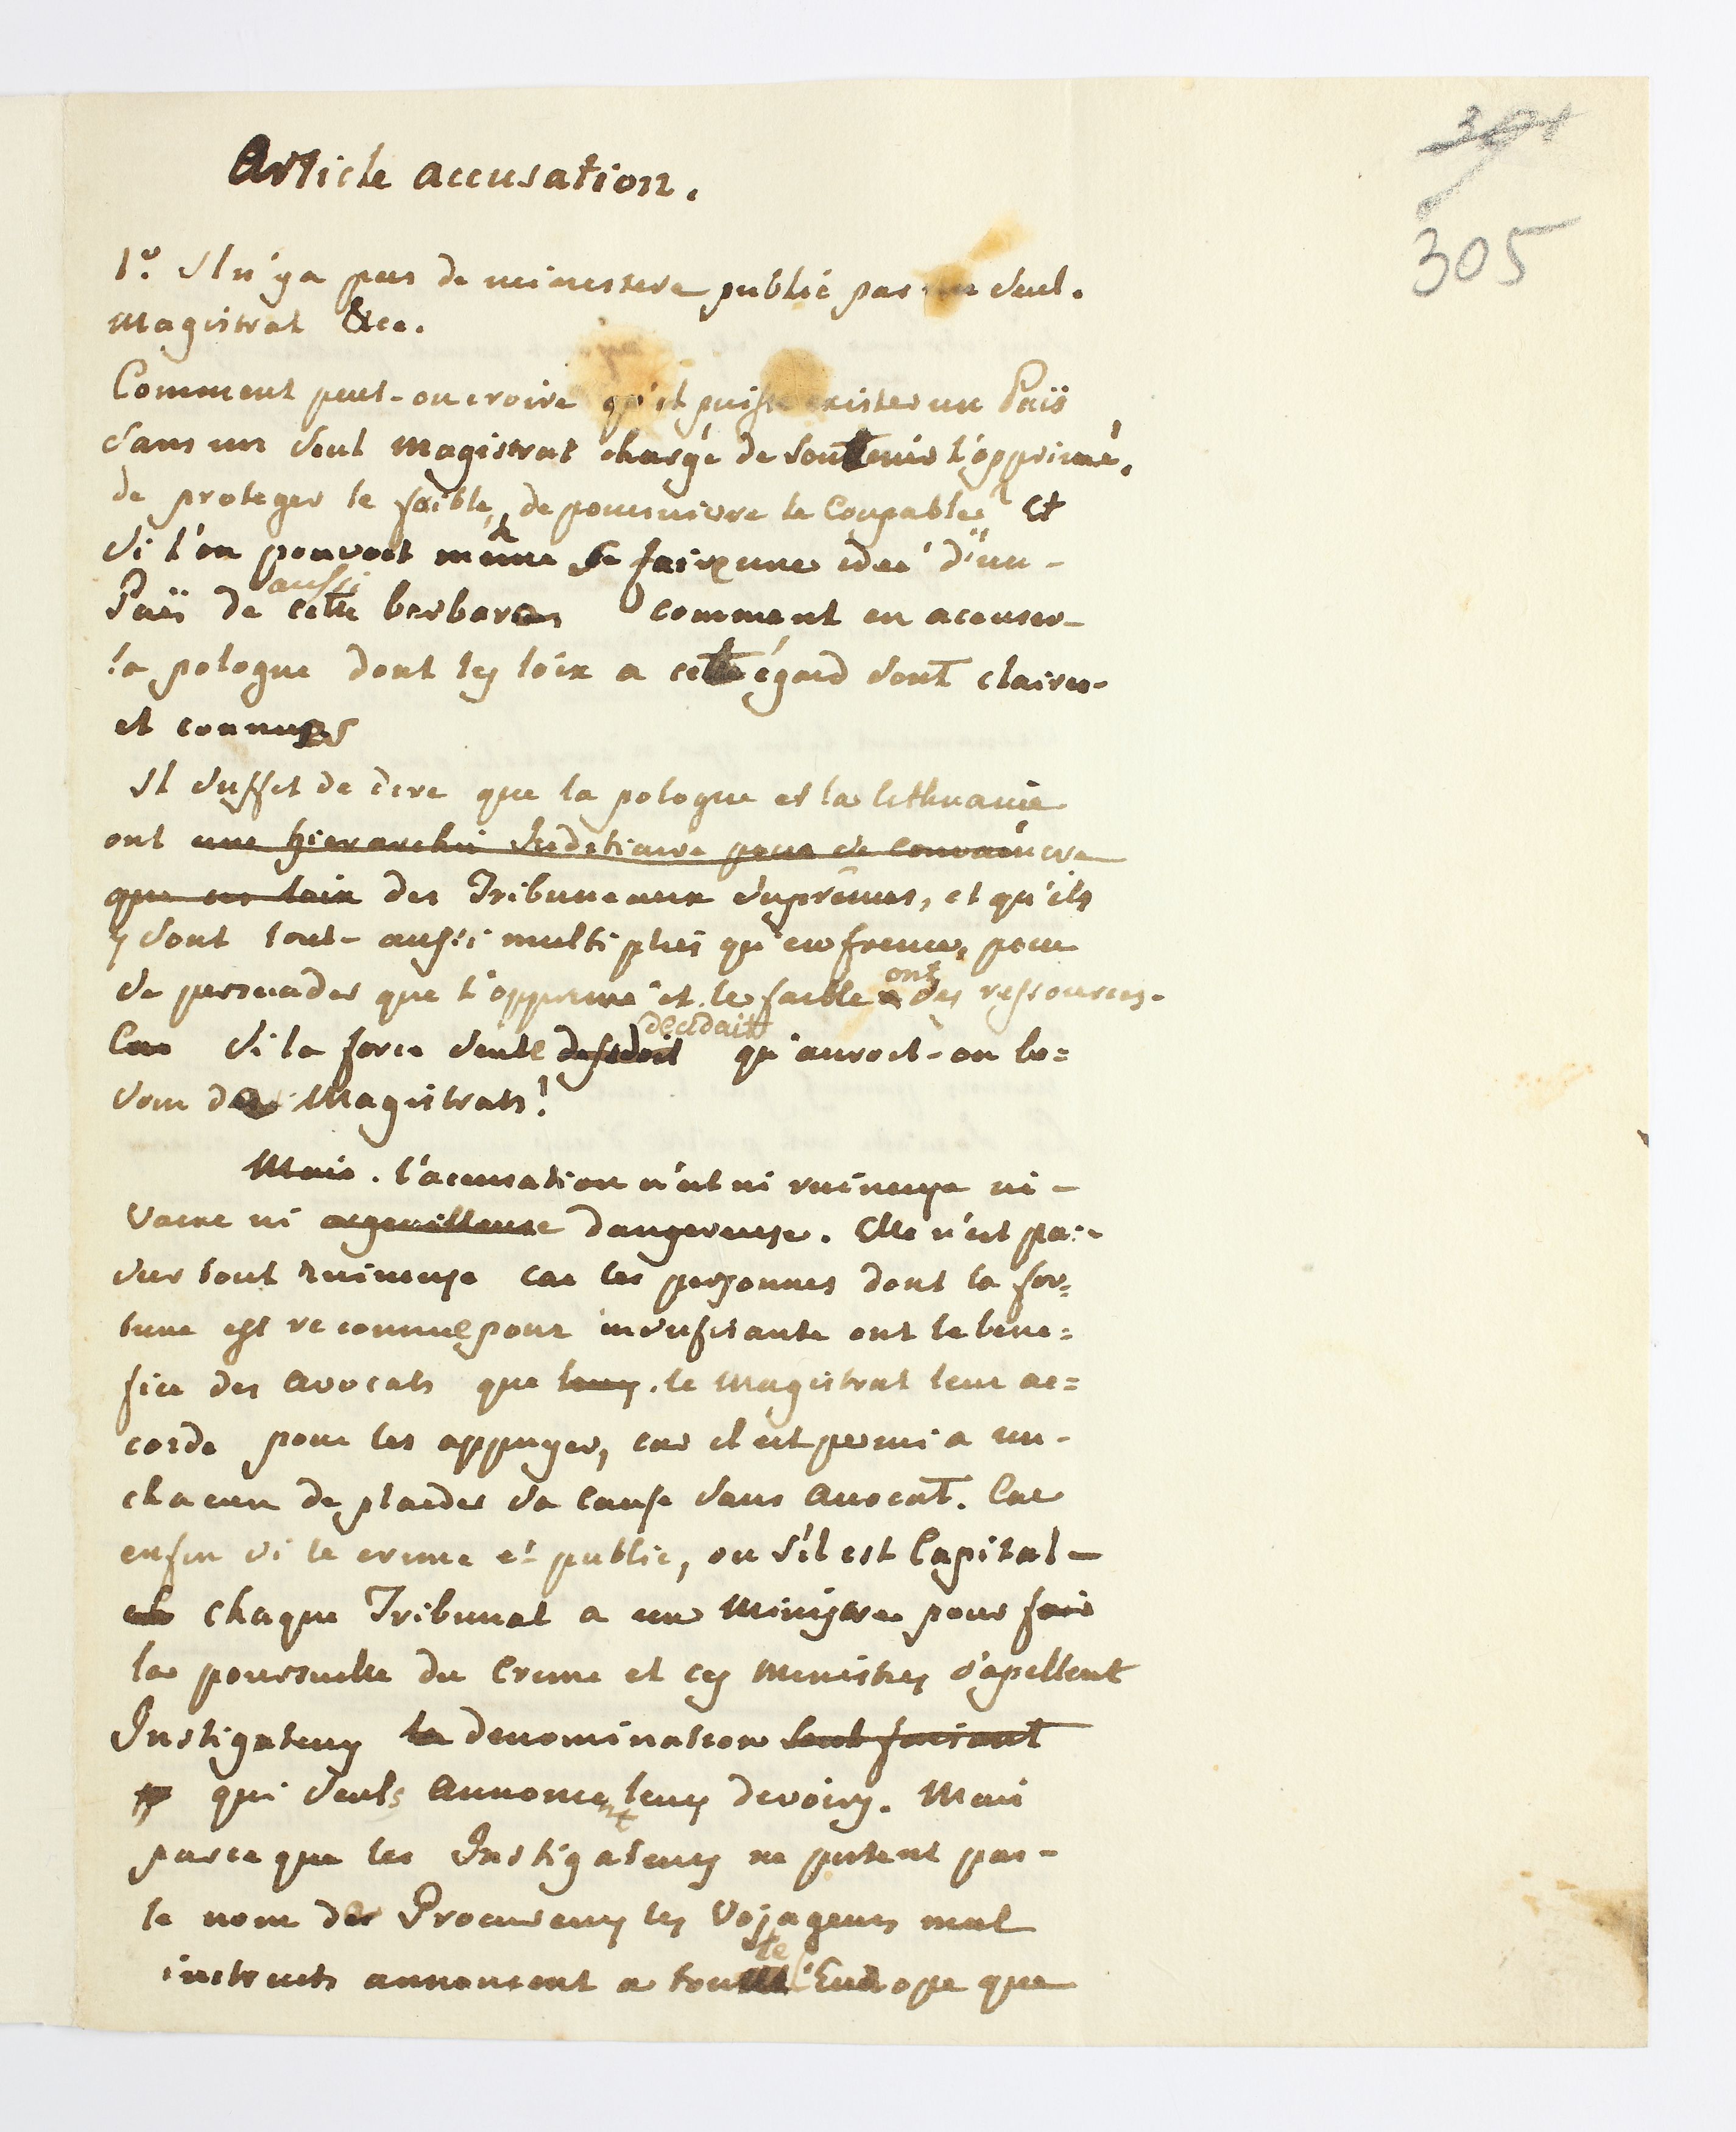 301
305
Article accusation.
1º. Il n'y a pas de ministere public pas un seul.
Magistrat &ce.
Comment peut-on croire qu'il puisse exister un Païs
sans un seul Magistrat chargé de soutenir l'opprimé,
de proteger le faible, de poursuivre le Coupable? et
si l'on pouvoit même se faire une ideé d'un-
Païs de cette aussi barbare comment en accuser-
la pologne dont les loix a cet égard sont claires-
et connues
Il suffit de dire que la pologne et la lithuanie
ont une hierarchie Juditiaire pour se convaincre
que ces loix des Tribuneaux suprêmes, et qu'ils
y sont tout-aussi multipliés qu'en france, pour
se persuader que l'opprimé et le faible ont des ressources.
Car si la force seule desidoit decidait qu'auroit-on be=
soin de Magistrats!
Mais. l'accusation n'est ni ruineuse ni-
vaine ni orgeuilleuse dangereuse. Elle n'est pas
sur tout ruineuse car les personnes dont la for=
tune est reconnue pour insufisante ont le bene=
fice des avocats que leurs. le Magistrat leur ac=
corde pour les appuyer, car il est permi a un-
chacun de plaider sa cause sans avocat. Car
enfin si le crime et public, ou s'il est Capital-
chaque Tribunal a un Ministre pour faire
la poursuitte du Crime et ces Ministres s'apellent
Instigateurs la denomination
qui seuls annoncent leurs devoirs. Mais
parce que les Instigateurs ne portent pas-
le nom de Procureurs les Voyageurs mal
instruits annoncent a toute l'Europe que